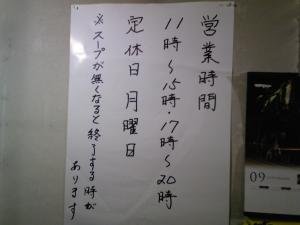 営業時間
11時〜15時・17時〜20時
定休日 月曜日
※スープが無くなると終了する時が
あります
09